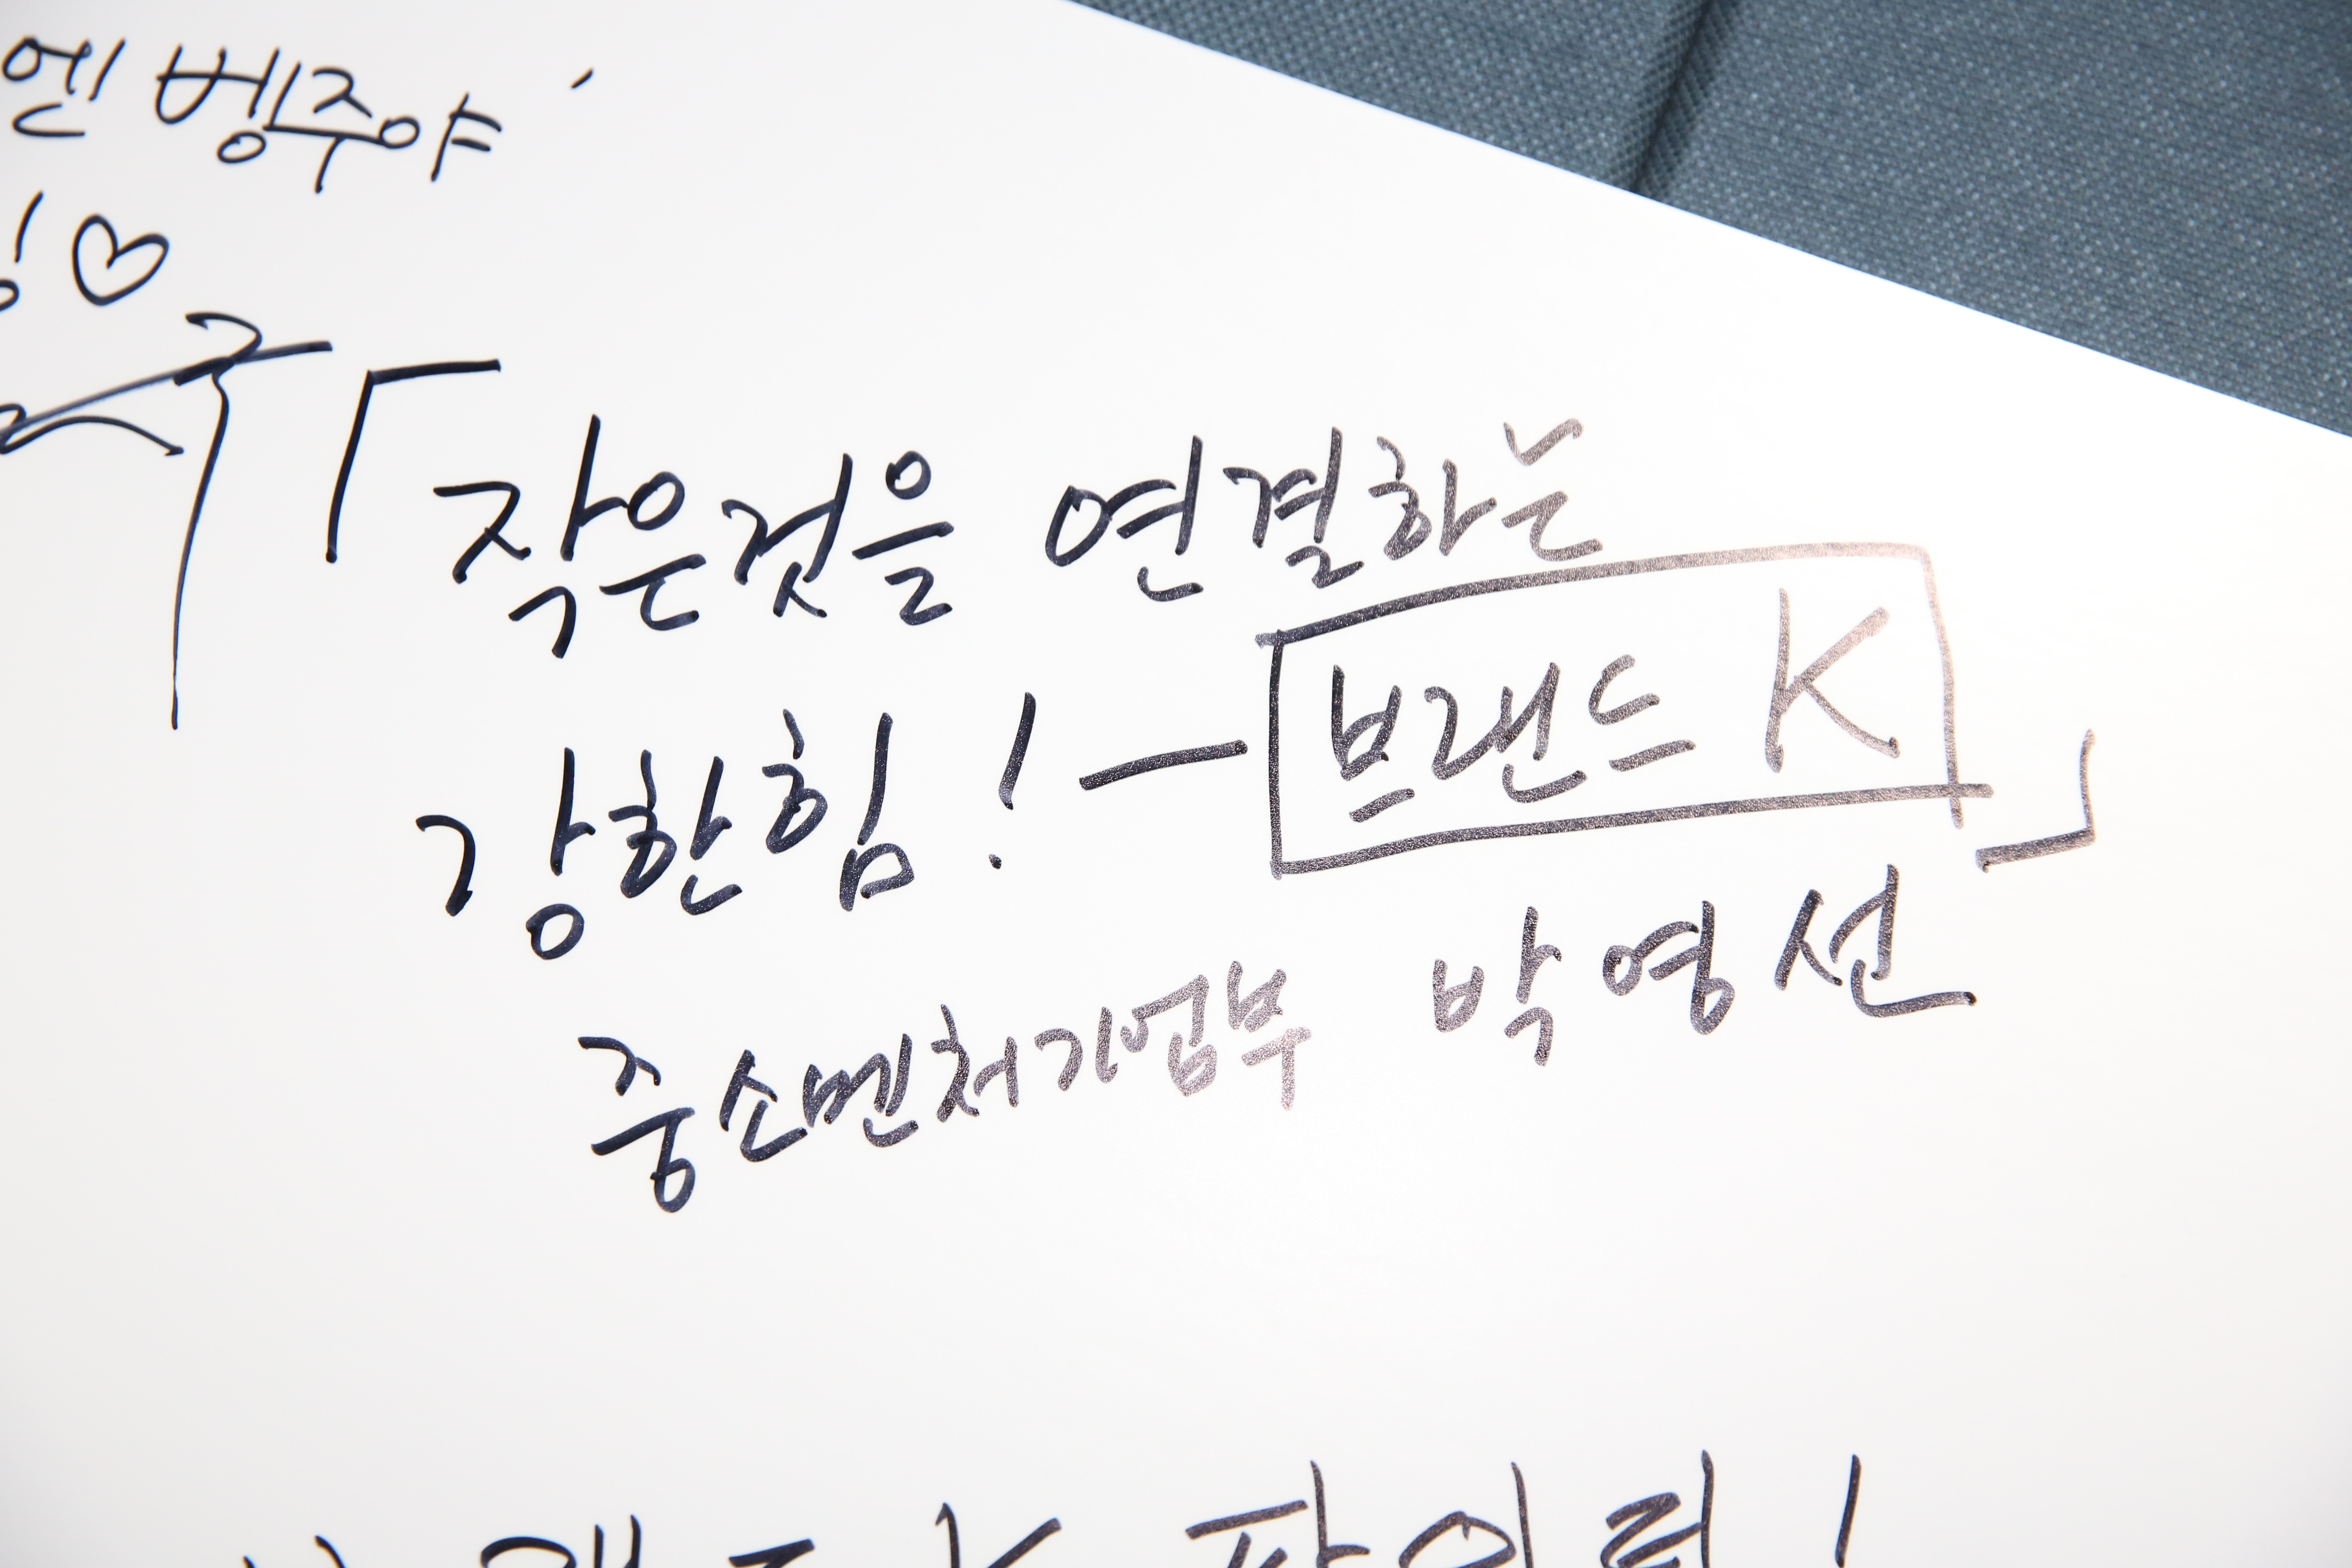 엔 벵주야
「작은것을 연결하는
강한힘! — 브랜드 K」
중소벤처기업부 박영선
브랜드 K 파이팅!